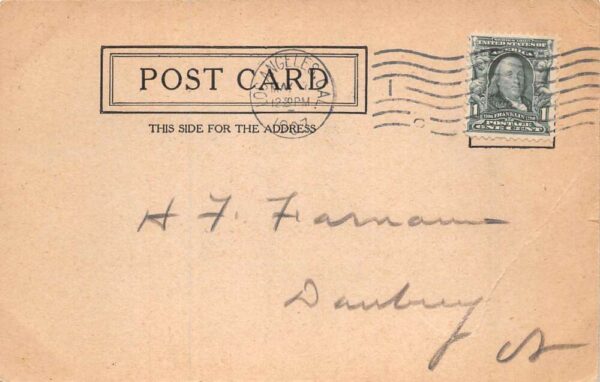 POST CARD
THIS SIDE FOR THE ADDRESS
LOS ANGELES, CAL.
12 30 PM
1907
1
SERIES 1902
UNITED STATES OF AMERICA
FRANKLIN
1 POSTAGE 1
ONE CENT
H F Farnam
Danbury